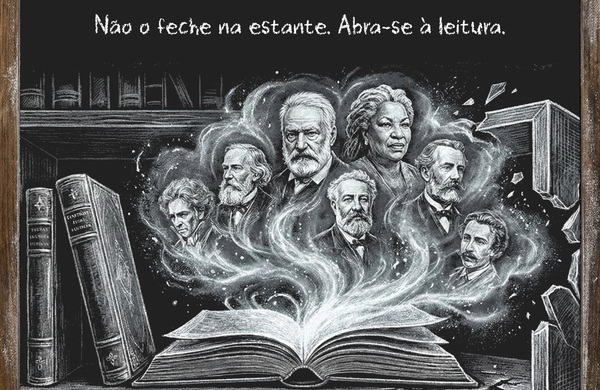 Não o feche na estante. Abra-se à leitura.